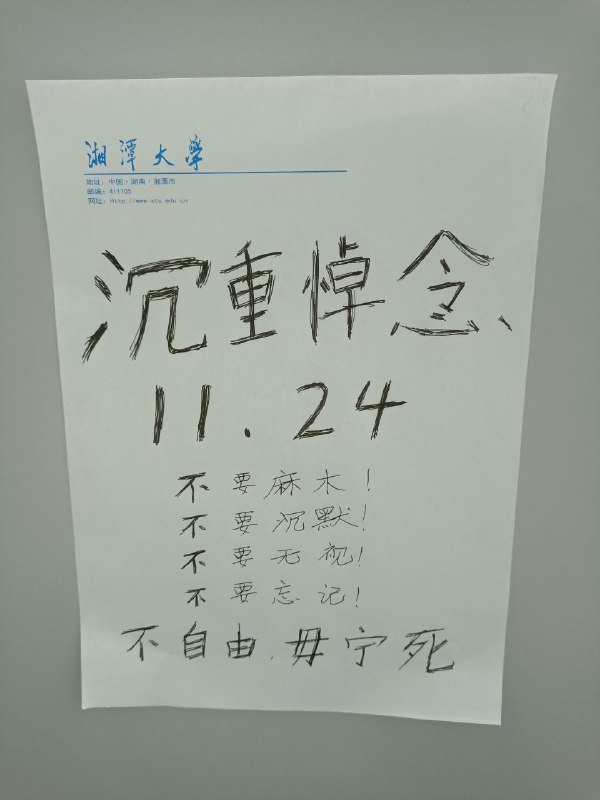 湘潭大學
地址：中国·湖南·湘潭市
邮编：411105
网址：Http://www.xtu.edu.cn
沉重悼念
11.24
不要麻木！
不要沉默！
不要无视！
不要忘记！
不自由.毋宁死